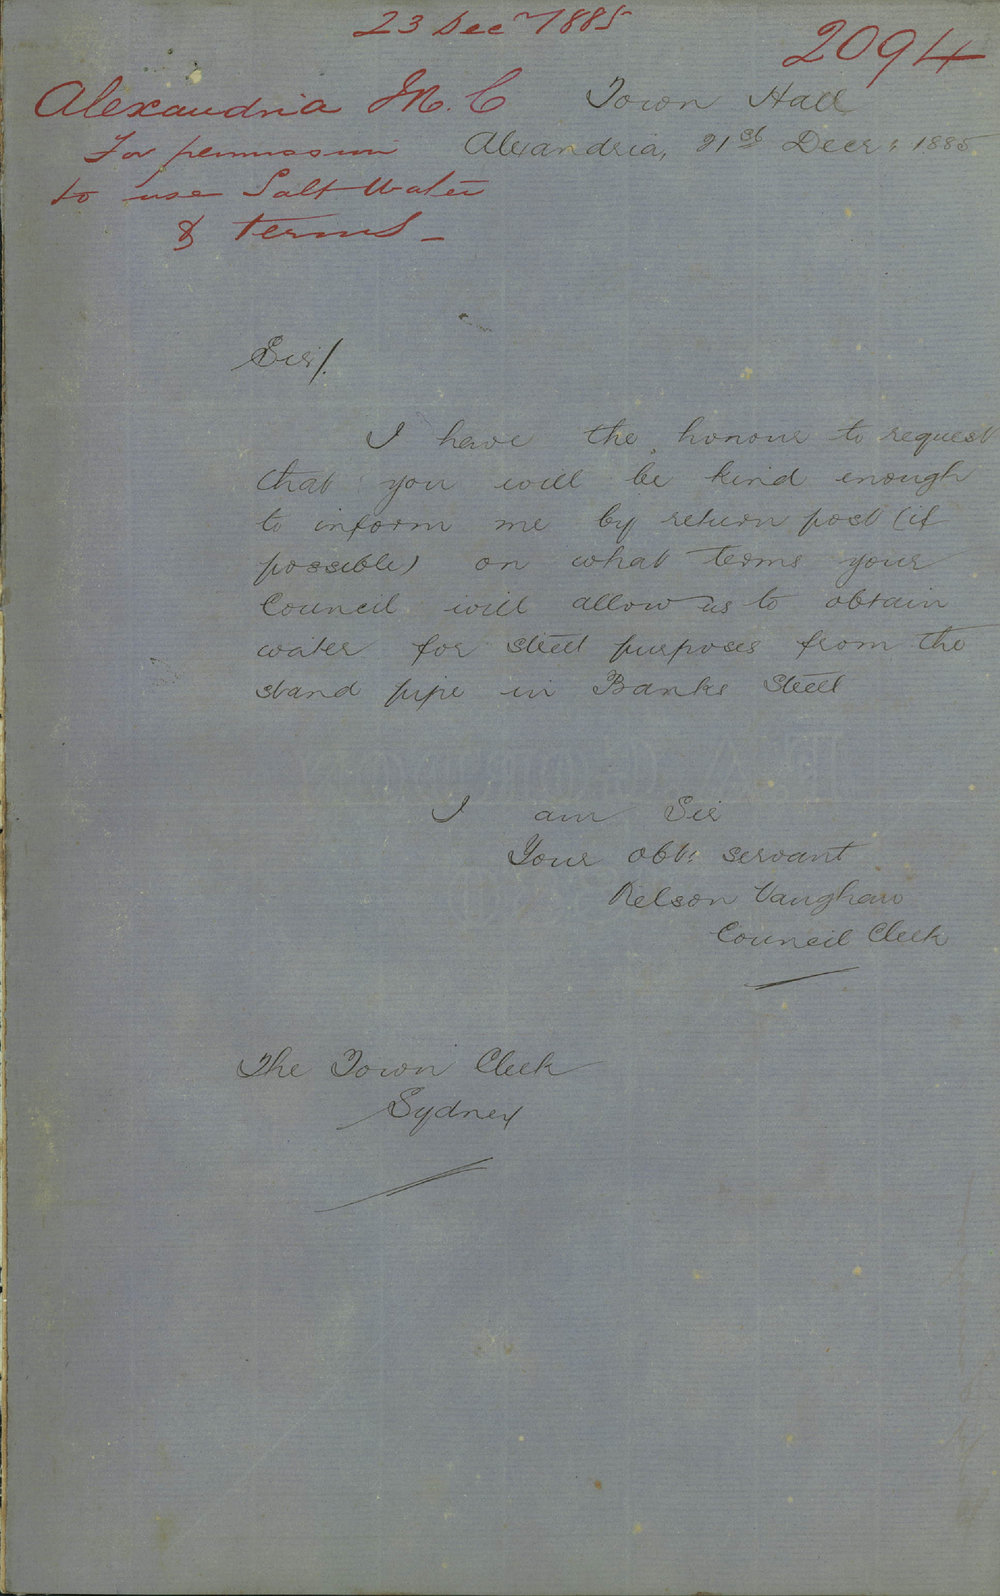 23 Decr 1885
2094
Alexandria M.C
For permission
to use Salt Water
& terms -
Town Hall
Alexandria, 21st Decr: 1885
Sir/.
I have the honour to request
that you will be kind enough
to inform me by return post (if
possible) on what terms your
Council will allow us to obtain
water for street purposes from the
stand pipe in Banks Street
I am Sir
Your obt: servant
Nelson Vaughan
Council Clerk
The Town Clerk
Sydney